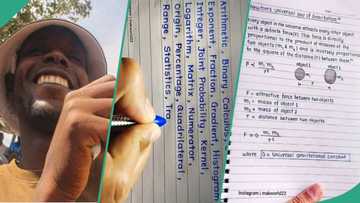 Arithmetic, Binary, Calculus
Exponent, Fraction, Gradient, Histogram
Integer, Joint Probability, Kernel,
Logarithm, Matrix, Numerator,
Origin, Percentage, Quadrilateral,
Range, Statistics, Ta
Newton's Universal law of Gravitation
Every object in the universe attracts every other object
with a definite force (F). This force is directly
proportional to the product of masses of the
two objects (m₁ & m₂) and is inversely proportional
to the square of the distance (r) between them
object 1 object 2
m₁ m₂
r
F = attractive force between two objects
m₁ = mass of object 1
m₂ = mass of object 2
r = distance between two objects
F = G m₁ m₂
r²
where G = Universal gravitational constant
Instagram | makworld22